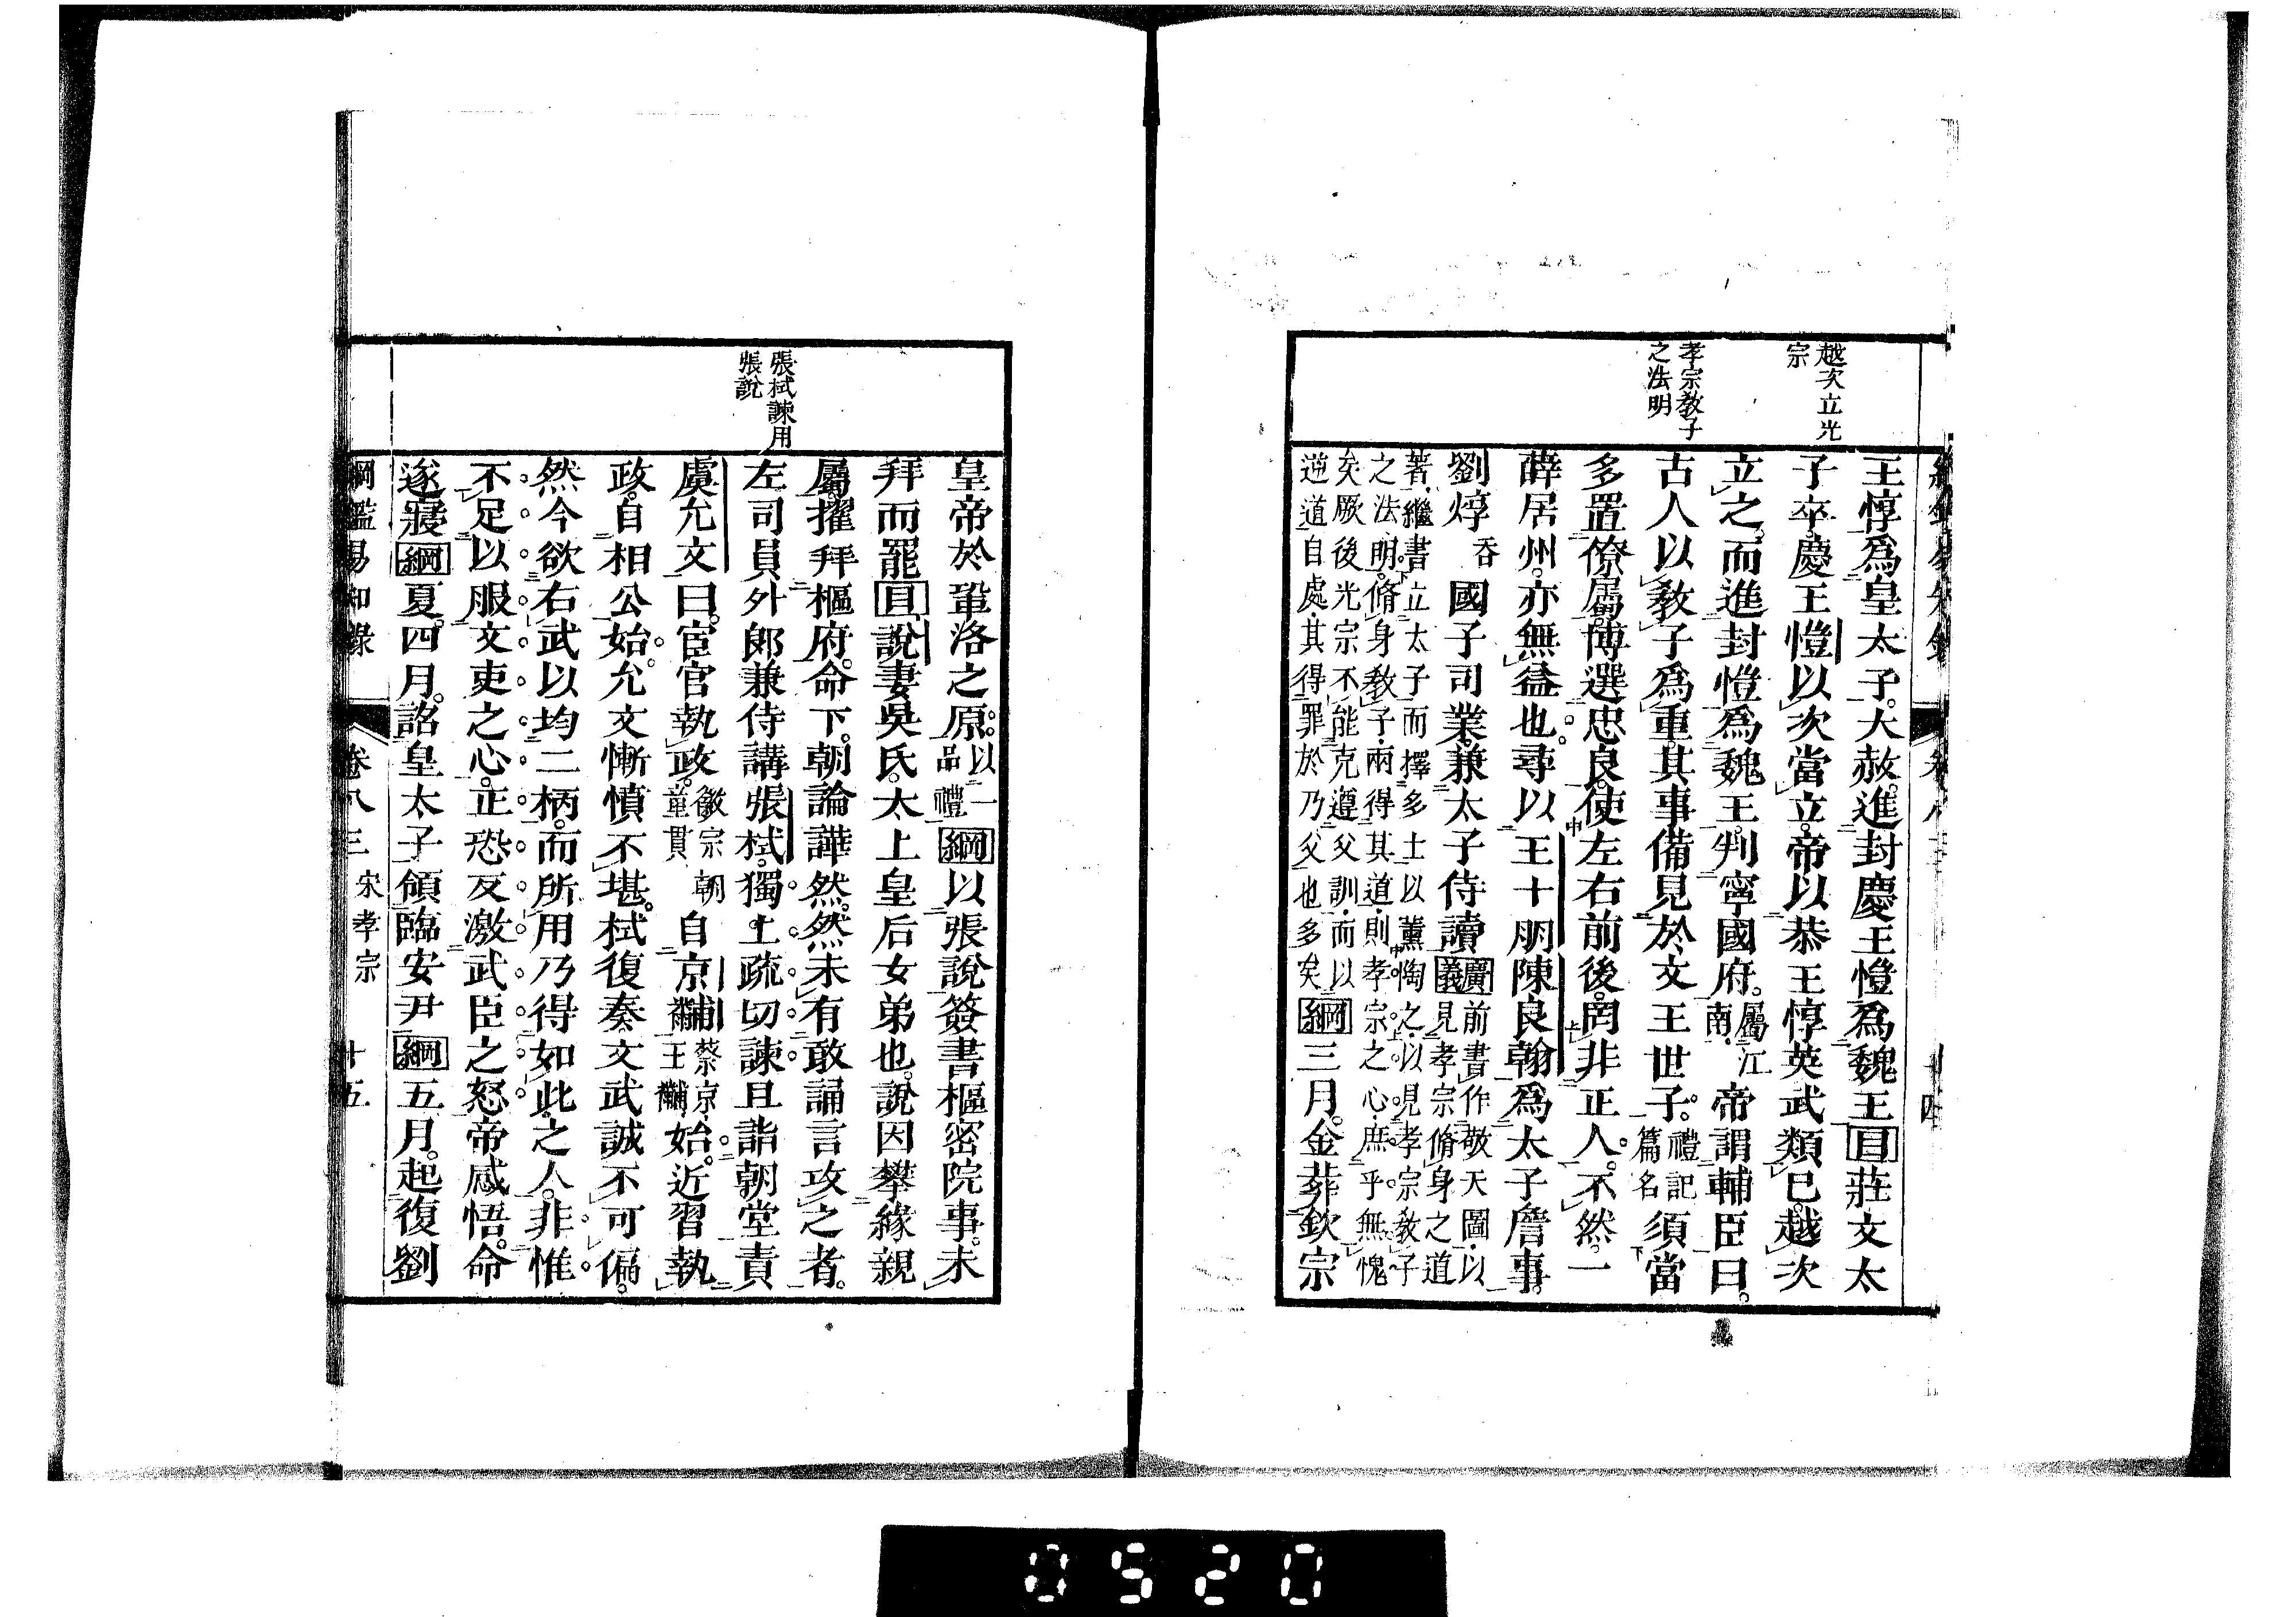 越次立光
宗
孝宗教子
之法明
王惇爲皇太子。大赦。進封慶王愷爲魏王目莊文太
子卒。慶王愷以次當立。帝以恭王惇英武類已。越次
立之。而進封愷爲魏王。判寧國府。屬江南。帝謂輔臣曰。
古人以教子爲重。其事備見於文王世子。禮記篇名須當
多置僚屬。博選忠良。使左右前後。罔非正人。不然。一
薛居州。亦無益也。尋以王十朋陳良翰爲太子詹事。
劉焞吞國子司業。兼太子侍讀廣義前書作敬天圖。以見孝宗脩身之道
著。繼書立太子而擇多士以薰陶之。以見孝宗教子
之法明。脩身教子。兩得其道。則孝宗之心。庶乎無愧
矣。厥後光宗不能克遵父訓。而以
逆道自處。其得罪於乃父也多矣綱三月。金葬欽宗
張栻諫用
張說
皇帝於鞏洛之原。以一品禮綱以張說簽書樞密院事。未
拜而罷目說妻吳氏。太上皇后女弟也。說因攀緣親
屬。擢拜樞府。命下。朝論譁然。然未有敢誦言攻之者。
左司員外郎兼侍講張栻。獨上疏切諫。且詣朝堂責
虞允文曰。宦官執政。徽宗朝童貫自京黼蔡京王黼始。近習執
政。自相公始。允文慚憤不堪。栻復奏文武誠不可偏。
然今欲右武以均二柄。而所用乃得如此之人。非惟
不足以服文吏之心。正恐反激武臣之怒。帝感悟。命
遂寢綱夏。四月。詔皇太子領臨安尹綱五月。起復劉
綱鑑易知錄 卷八三 宋孝宗 十五